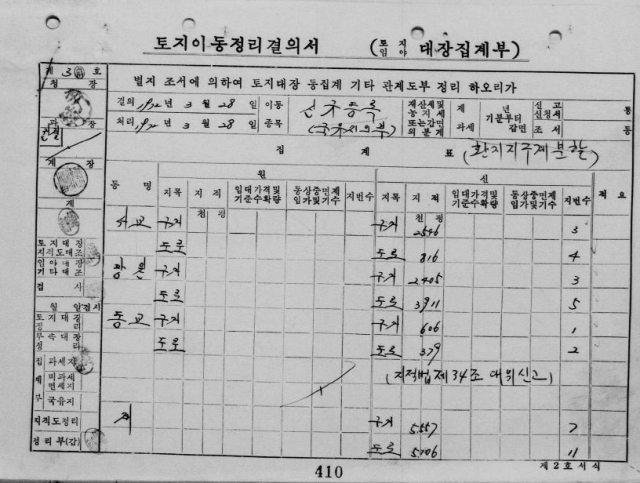 토지이동정리결의서 (토지 임야 대장집계부)
제 3 호
청 장
별지 조서에 의하여 토지대장 동집계 기타 관계도부 정리 하오리가
결의 년 3 월 28 일 이동 신규등록 재산세및 농지세 또는감면 의 분계 제 과세 년 기분부터 감면 신 고 신청서 조 서
처리 년 3 월 28 일 종목
과 장
건설
계 장
집 계 표 (환지지구계분할)
동 명 원 신 적 요
지목 지 적 임대가격및 기준수확량 동상중면제 임가및기수 지번수 지목 지 적 임대가격및 기준수확량 동상중면제 임가및기수 지번수
계
천 평 천 평
서교 구거 구거 2546 3
도로 도로 816 4
토지대장
지적도대조
임야대장
기타대조
구거 구거 2405 3
검 사
도로 도로 3911 5
월 일 검사
동교 구거 구거 606 1
토지대장
정 리
부속대장
정 리
도로 도로 379 2
집 과세지
계 비과세 면세지
부 국유지
(지적법제34조 대위신고)
지적도정리
계 구거 5557 7
정리부(갑)
도로 5106 11
410
제2호서식